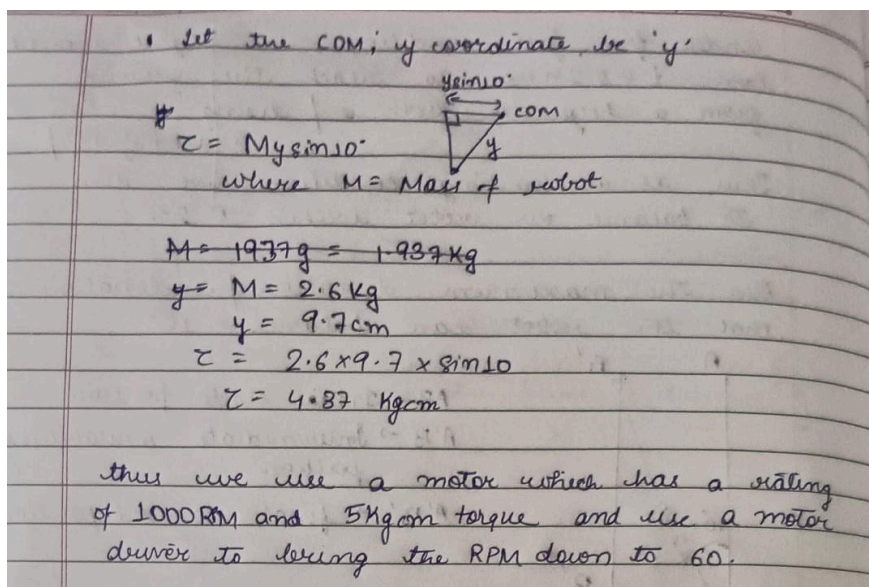 • Let the COM; y coordinate be 'y'
ysin10°
COM
y
τ = Mysin10°
where M = Mass of robot
M = 1937g = 1.937Kg
y = M = 2.6Kg
y = 9.7cm
τ = 2.6×9.7×sin10
τ = 4.37 Kgcm
thus we use a motor which has a rating
of 1000RPM and 5Kgcm torque and use a motor
driver to bring the RPM down to 60.